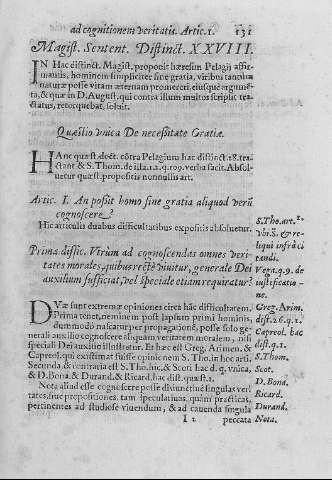 ad cognitionem veritatis. Artic. 1. 131
Magist. Sentent. Distinct. XXVIII.
IN Hac distinct. Magist. proponit hæresim Pelagij affir-
mantis, hominem simpliciter sine gratia, viribus tantùm
naturæ posse vitam æternam promereri, eiusque argumē-
ta, & quæ in D. August. qui contra illum multos scripsit tra-
ctatus, retorquebat, soluit.
Quæstio vnica De necessitate Gratiæ.
HAnc quæst. doct. cōtra Pelagium hac distinct. 28. tra-
ctant & S. Thom. de illa. 1. 2. q. 109. verba facit. Absol-
uetur quæst. propositis nonnullis art.
Artic. I. An possit homo sine gratia aliquod verū
cognoscere?
Hic articulis duabus difficultatibus expositis absoluetur.
Prima diffic. Vtrùm ad cognoscendas omnes veri-
tates morales, quibus rectè viuitur, generale Dei
auxilium sufficiat, vel speciale etiam requiratur?
DVæ sunt extremæ opiniones circa hāc difficultatem.
Prima tenet, neminem post lapsum primi hominis,
dummodò nascatur per propagationē, posse solo ge-
nerali auxilio cognoscere aliquam veritatem moralem, nisi
speciali Dei auxilio illustretur. Et hæc est Greg. Arimen. &
Capreol. qui existimat fuisse opinionem S. Tho. in hoc arti.
Secunda, & contraria est S. Tho. hîc, & Scoti hac d. q. vnica,
& D. Bona. & Durand. & Ricard. hac dist. quæst. 1.
Nota aliud esse cognoscere posse diuiniūs siue singulas veri
tates, siue propositiones, tam speculatiuas, quàm practicas,
pertinentes ad studiosè viuendum, & ad cauenda singula
I 2 peccata
S. Tho. art. 2.
vbi S. & re-
liqui infrà ci
tandi.
Vega. q. 9. de
iustificatio-
ne.
Greg. Arim.
dist. 26. q. 1.
Capreol. hac
dist. q. 1.
S. Thom.
Scot.
D. Bona.
Ricard.
Durand.
Nota.